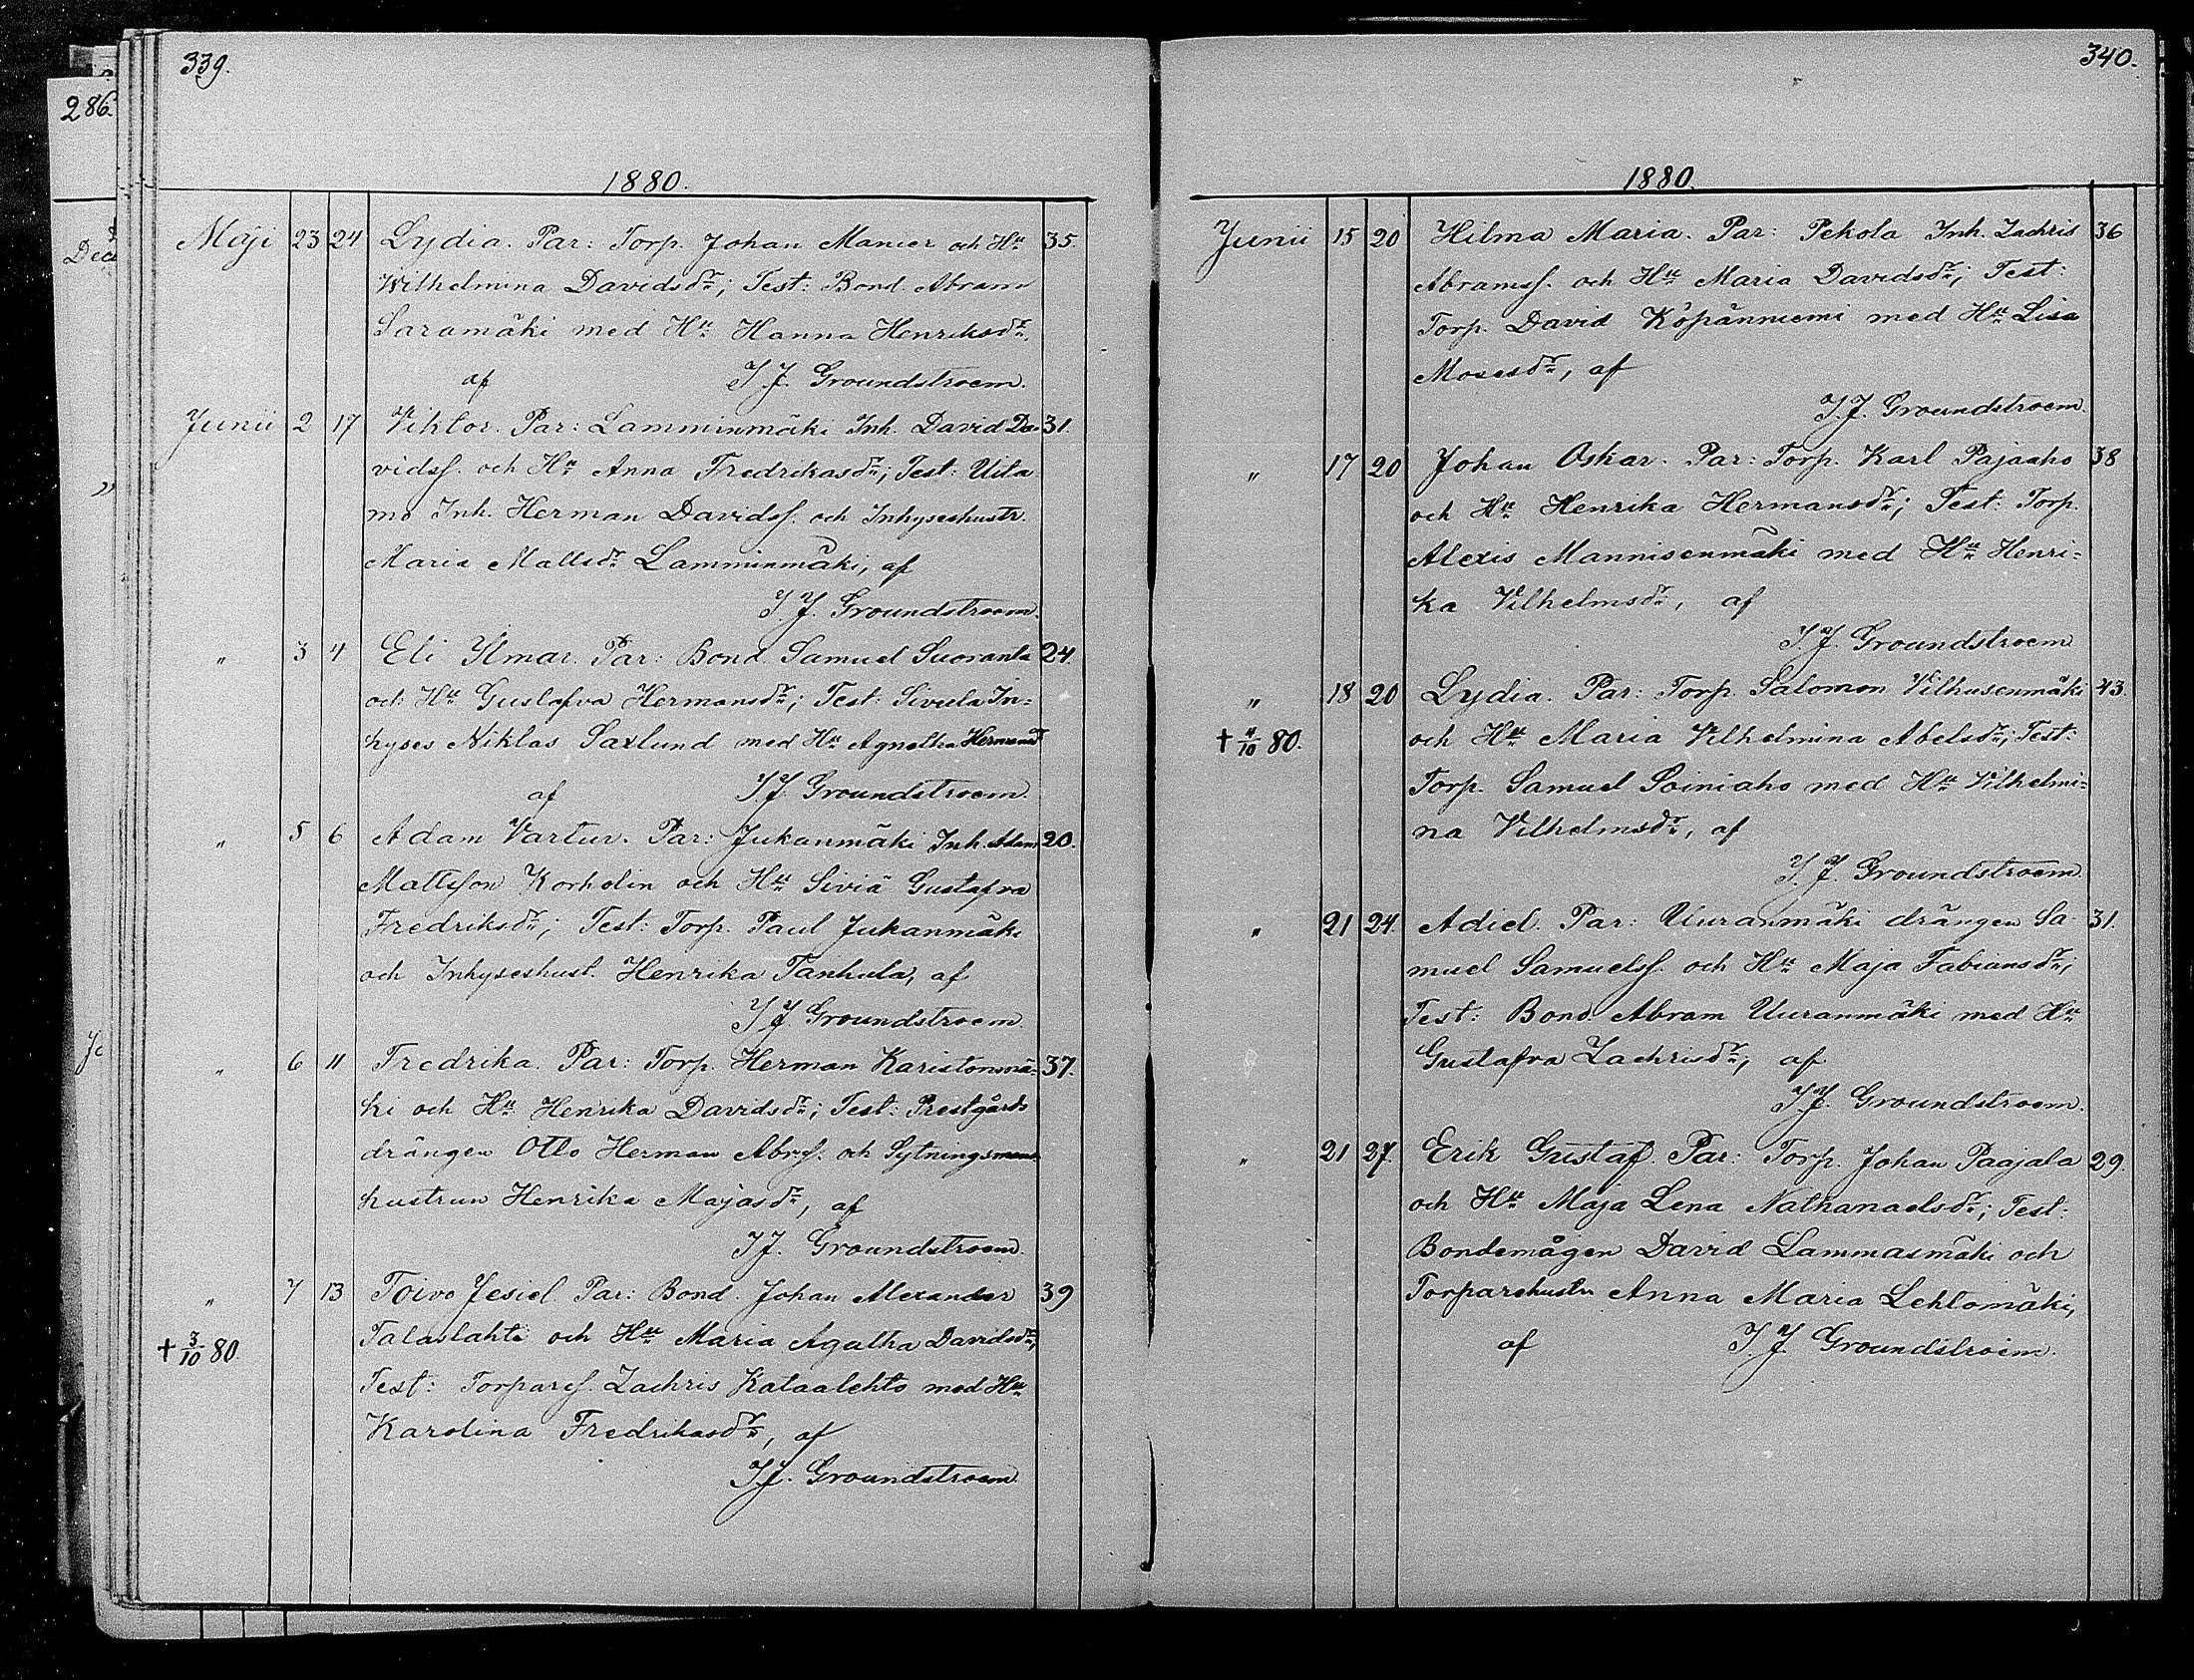 339.
286.
1880.
Maji 23 24 Lydia. Par: Torp. Johan Manier och Hu 35.
Wilhelmina Davidsdr; Test: Bond. Abram
Saramäki med Hu Hanna Henriksdr.
af I. J. Groundstroem.
Junii 2 17 Viktor. Par: Lamminmäki Inh. David Da- 31.
vidss. och Hu Anna Fredrikasdr; Test: Uita
mo Inh. Herman Davidss. och Inhyseshustr.
Maria Mattsdr Lamminmäki, af
I. J. Groundstroem.
" 3 4 Eli Ilmar. Par: Bond. Samuel Suoranta 24.
och Hu Gustafva Hermansdr; Test: Sivula In=
hyses Niklas Saxlund med Hu Agnetha Hermansd
af I. J. Groundstroem.
" 5 6 Adam Vartur. Par: Jukanmäki Inh. Adam 20.
Mattsson Korholin och Hu Siviä Gustafva
Fredriksdr; Test: Torp. Paul Jukanmäki
och Inhyseshust. Henrika Tanhula, af
I J. Groundstroem.
" 6 11 Fredrika. Par: Torp. Herman Karistonmä= 37.
ki och Hu Henrika Davidsdr; Test: Prestgårds
drängen Otto Herman Abrss. och Sytningsmans
hustrun Henrika Majasdr, af
I J. Groundstroem.
" 7 13 Toivo Jesiel Par: Bond. Johan Alexander 39
+ 3/10 80. Talaslahti och Hu Maria Agatha Davidsdr;
Test: Torpares. Zachris Kataalehto med Hu
Karolina Fredrikasdr, af
I J. Groundstroem.
340.
1880.
Junii 15 20 Hilma Maria. Par: Pekola Inh. Zachris 36
Abramss. och Hu Maria Davidsdr; Test:
Torp. David Köpänniemi med Hu Lisa
Mosesdr, af
I. J. Groundstroem.
" 17 20 Johan Oskar. Par: Torp. Karl Pajaaho 38
och Hu Henrika Hermansdr; Test: Torp.
Alexis Mannisenmäki med Hu Henri=
ka Vilhelmsdr, af
I. J. Groundstroem
" 18 20 Lydia. Par: Torp. Salomon Vilhusenmäki 43.
+ 4/10 80. och Hu Maria Vilhelmina Abelsdr; Test:
Torp. Samuel Soiniaho med Hu Vilhelmi=
na Vilhelmsdr, af
I. J. Groundstroem.
" 21 24. Adiel. Par: Uuranmäki drängen Sa- 31.
muel Samuelss. och Hu Maja Fabiansdr;
Test: Bond. Abram Uuranmäki med Hu
Gustafva Zachrisdr, af
I. J. Groundstroem.
" 21 27. Erik Gustaf. Par: Torp. Johan Paajala 29.
och Hu Maja Lena Nathanaelsdr; Test:
Bondemågen David Lammasmäki och
Torparehustr Anna Maria Lehtomäki,
af I. J. Groundstroem.